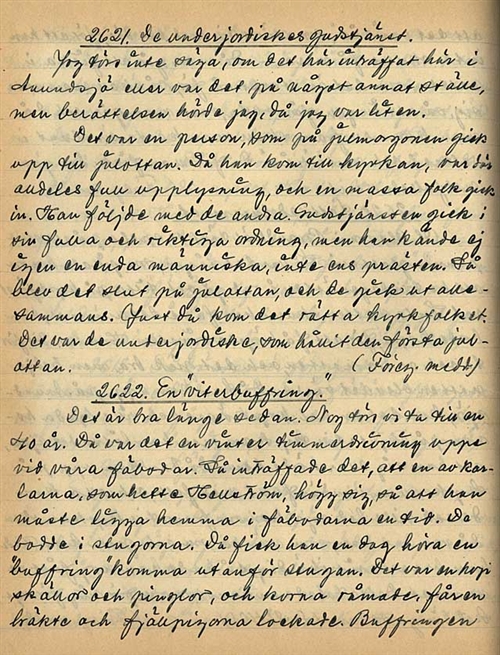 2621. De underjordiskes gudstjänst.
Jag törs inte säga, om det här inträffat här i
Anundsjö eller var det på något annat ställe,
men berättelsen hörde jag, då jag var liten.
Det var en person, som på julmorgonen gick
upp till julottan. Då han kom till kyrkan, var där
alldeles full upplysning, och en massa folk gick
in. Han följde med de andra. Gudstjänsten gick i
sin fulla och riktiga ordning, men han kände ej
igen en enda människa, inte ens prästen. Så
blev det slut på julottan, och de gick ut alle-
sammans. Just då kom det rätta kyrkfolket.
Det var de underjordiske, som hållit den första jul-
ottan. (Föreg. medd.)
2622. En "viterbuffring."
Det är bra länge sedan. Nog törs vi ta till en
40 år. Då var det en vinter timmerdrivning uppe
vid våra fäbodar. Så inträffade det, att en av kar-
larna, som hette Hellström, högg sig, så att han
måste ligga hemma i fäbodarna en tid. De
bodde i stugorna. Då fick han en dag höra en
"buffring" komma utanför stugan. Det var en hop
skällor och pinglor, och korna råmade, fåren
bräkte och fjällpigorna lockade. Buffringen